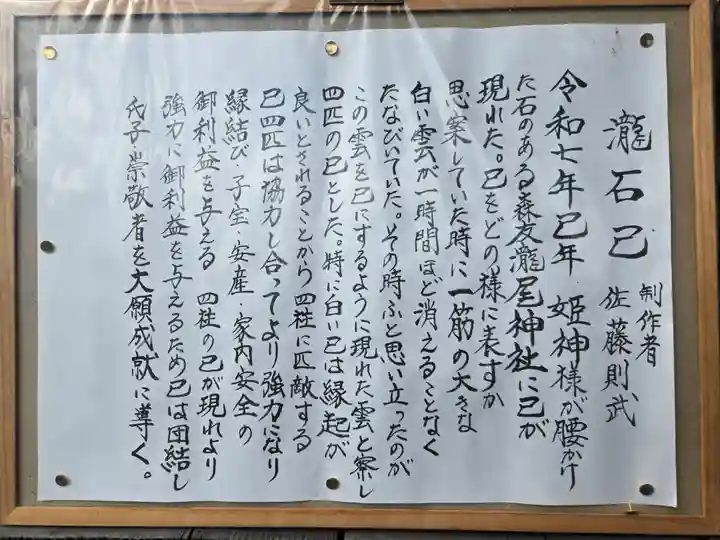 瀧石巳
制作者
佐藤則武
令和七年巳年 姫神様が腰かけ
た石のある森友瀧尾神社に巳が
現れた。巳をどの様に表すか
思案していた時に一筋の大きな
白い雲が一時間ほど消えることなく
たなびいていた。その時ふと思い立ったのが
この雲を巳にするように現れた雲と察し
四匹の巳とした。特に白い巳は縁起が
良いとされることから四社に匹敵する
巳四匹は協力し合ってより強力になり
縁結び・子宝・安産・家内安全の
御利益を与える 四社の巳が現れより
強力に御利益を与えるため巳は団結し
氏子崇敬者を大願成就に導く。